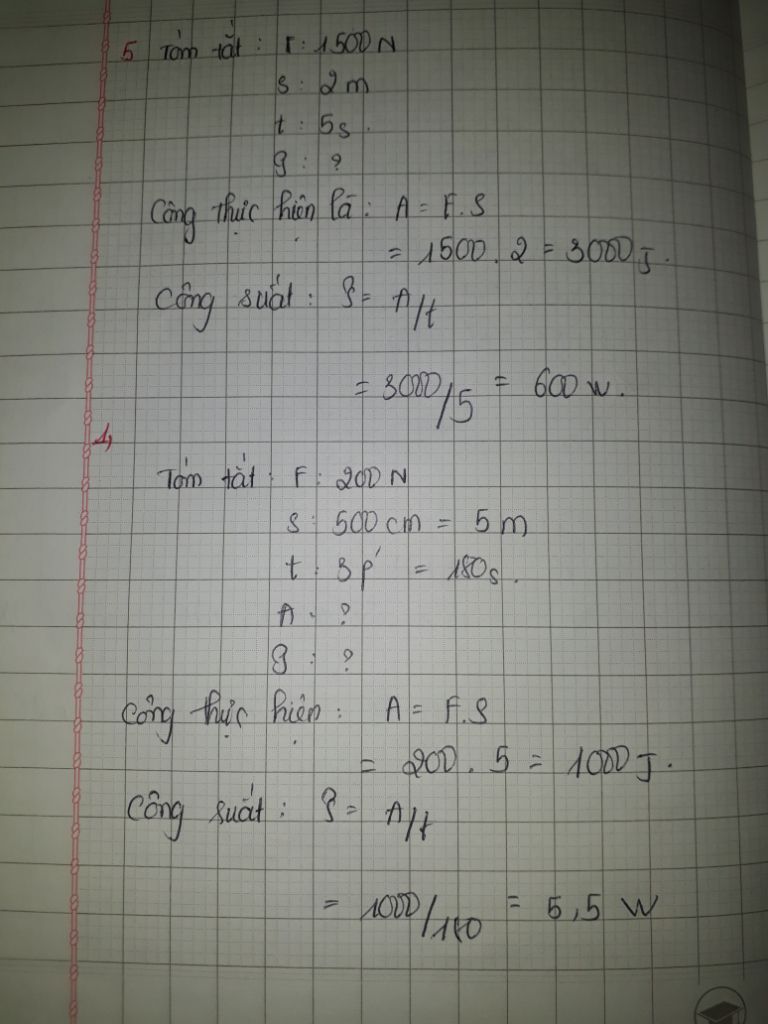 5 Tóm tắt: F: 1500N
s: 2m
t: 5s.
P: ?
Công thực hiện là: A = F.S
= 1500.2 = 3000J.
Công suất: P = A/t
= 3000/5 = 600W.
1,
Tóm tắt: F: 200N
s: 500cm = 5m
t: 3p' = 180s.
A: ?
P: ?
Công thực hiện: A = F.S
= 200.5 = 1000J.
Công suất: P = A/t
= 1000/180 = 5,5 W